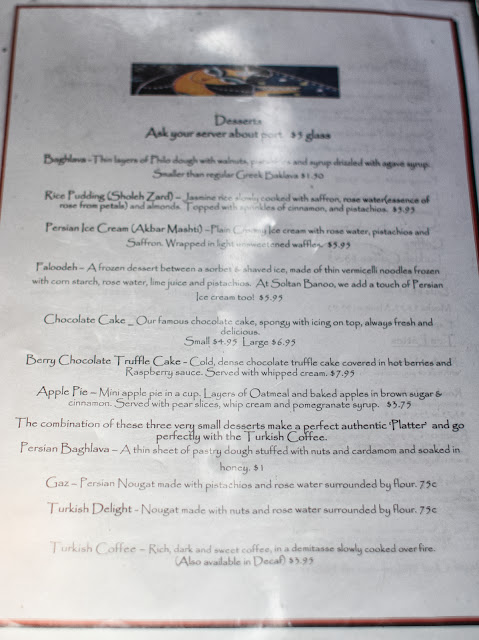 Desserts
Ask your server about port. $5 glass
Baghlava - Thin layers of Philo dough with walnuts, pistachios and syrup drizzled with agave syrup.
Smaller than regular Greek Baklava $1.50
Rice Pudding (Sholeh Zard) – Jasmine rice slowly cooked with saffron, rose water(essence of
rose from petals) and almonds. Topped with sprinkles of cinnamon, and pistachios. $3.95
Persian Ice Cream (Akbar Mashti) –Plain Creamy Ice cream with rose water, pistachios and
Saffron. Wrapped in light unsweetened waffles. $5.95
Paloodeh – A frozen dessert between a sorbet & shaved ice, made of thin vermicelli noodles frozen
with corn starch, rose water, lime juice and pistachios. At Soltan Banoo, we add a touch of Persian
Ice cream too! $5.95
Chocolate Cake _ Our famous chocolate cake, spongy with icing on top, always fresh and
delicious.
Small $4.95 Large $6.95
Berry Chocolate Truffle Cake - Cold, dense chocolate truffle cake covered in hot berries and
Raspberry sauce. Served with whipped cream. $7.95
Apple Pie – Mini apple pie in a cup. Layers of Oatmeal and baked apples in brown sugar &
cinnamon. Served with pear slices, whip cream and pomegranate syrup. $3.75
The combination of these three very small desserts make a perfect authentic 'Platter' and go
perfectly with the Turkish Coffee.
Persian Baghlava – A thin sheet of pastry dough stuffed with nuts and cardamom and soaked in
honey. $1
Gaz – Persian Nougat made with pistachios and rose water surrounded by flour. 75¢
Turkish Delight - Nougat made with nuts and rose water surrounded by flour. 75¢
Turkish Coffee – Rich, dark and sweet coffee, in a demitasse slowly cooked over fire.
(Also available in Decaf) $3.95